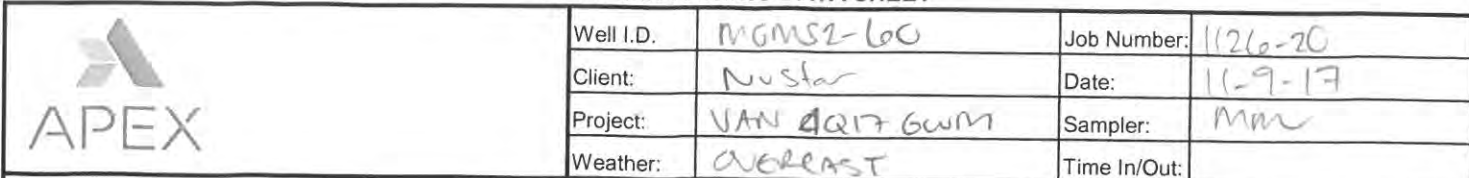 APEX
Well I.D. MGMS2-60 Job Number: 1126-20
Client: NuStar Date: 11-9-17
Project: VAN 4Q17 GWM Sampler: MM
Weather: OVERCAST Time In/Out: